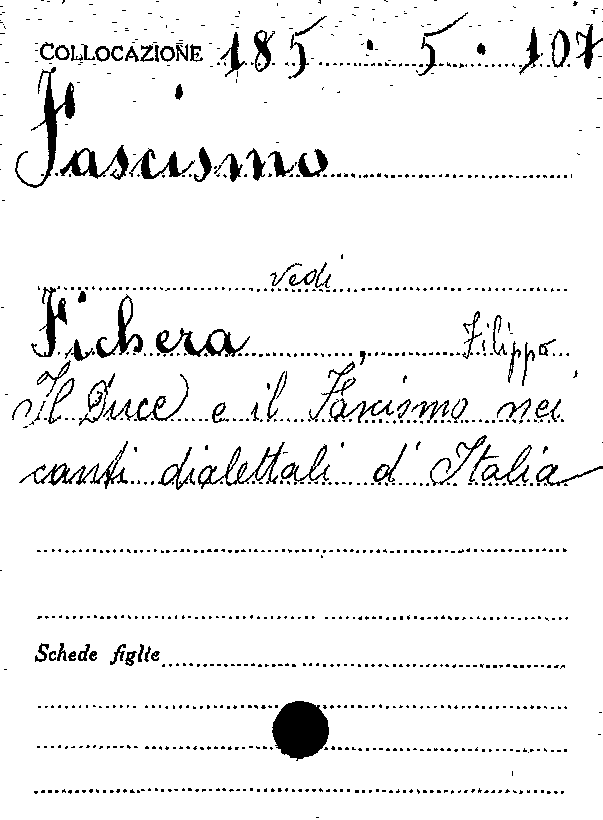 COLLOCAZIONE 185 . 5 . 107
Fascismo
vedi
Fichera, Filippo
Il Duce e il Fascismo nei
canti dialettali d'Italia
Schede figlie